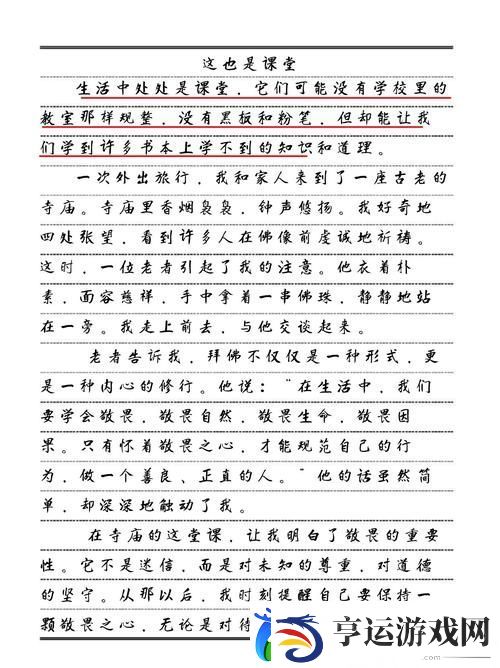 这也是课堂
生活中处处是课堂，它们可能没有学校里的
教室那样规整，没有黑板和粉笔，但却能让我
们学到许多书本上学不到的知识和道理。
一次外出旅行，我和家人来到了一座古老的
寺庙。寺庙里香烟袅袅，钟声悠扬。我好奇地
四处张望，看到许多人在佛像前虔诚地祈祷。
这时，一位老者引起了我的注意。他衣着朴
素，面容慈祥，手中拿着一串佛珠，静静地站
在一旁。我走上前去，与他交谈起来。
老者告诉我，拜佛不仅仅是一种形式，更
是一种内心的修行。他说：“在生活中，我们
要学会敬畏，敬畏自然，敬畏生命，敬畏因
果。只有怀着敬畏之心，才能规范自己的行
为，做一个善良、正直的人。”他的话虽然简
单，却深深地触动了我。
在寺庙的这堂课，让我明白了敬畏的重要
性。它不是迷信，而是对未知的尊重，对道德
的坚守。从那以后，我时刻提醒自己要保持一
颗敬畏之心，无论是对待
亨运游戏网